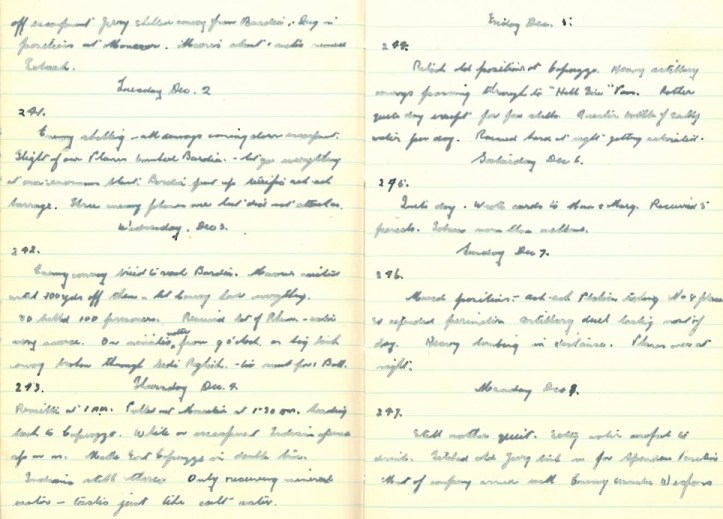 off escarpment Jerry shelled convoy from Bardia. Dug in
positions at
Tobach.
Tuesday Dec. 2
241.
Enemy shelling - all convoys coming down escarpment.
Flight of our Planes bombed Bardia. - let go everything
at once enormous blast Bardia put up terrific ack ack
barrage. Three enemy planes over but did not attack us.
Wednesday. Dec 3.
242.
Enemy convoy tried to reach Bardia. Maoris waited
until 300 yds off them - let convoy have everything.
30 killed 100 prisoners. Received 1st of Plum - water
very scarce. On from 9 o'clock as big tank
convoy broken through Sedi
243. Thursday Dec. 4.
Reveille at 1 AM. Pulled out at 1-30 am. heading
back to Capuzzo. While on escarpment Indians opened
up on us. Capuzzo in double time.
Indians still there. Only receiving mineral
water - tastes just like salt water.
Friday Dec. 5.
244.
Retook old positions at Capuzzo. Heavy artillery
convoys passing through to "Hell Fire" Pass. Rather
quiet day except for few shells. Quarter bottle of salty
water per day. Rained hard at night getting
Saturday Dec 6.
245.
Quiet day. Wrote cards to & Marg. Received 5
parcels. Tobacco more than welcome.
Sunday Dec 7.
246.
Moved positions - ack-ack Platoon taking No 8 place
so extended perimeter artillery duel lasting most of
day. Heavy bombing in distance. Planes over at
night.
Monday Dec 8.
247.
Still rather quiet. Salty water awful to
drink. Fetched old Jerry in for Spandau
Most of company armed with Enemy Weapons